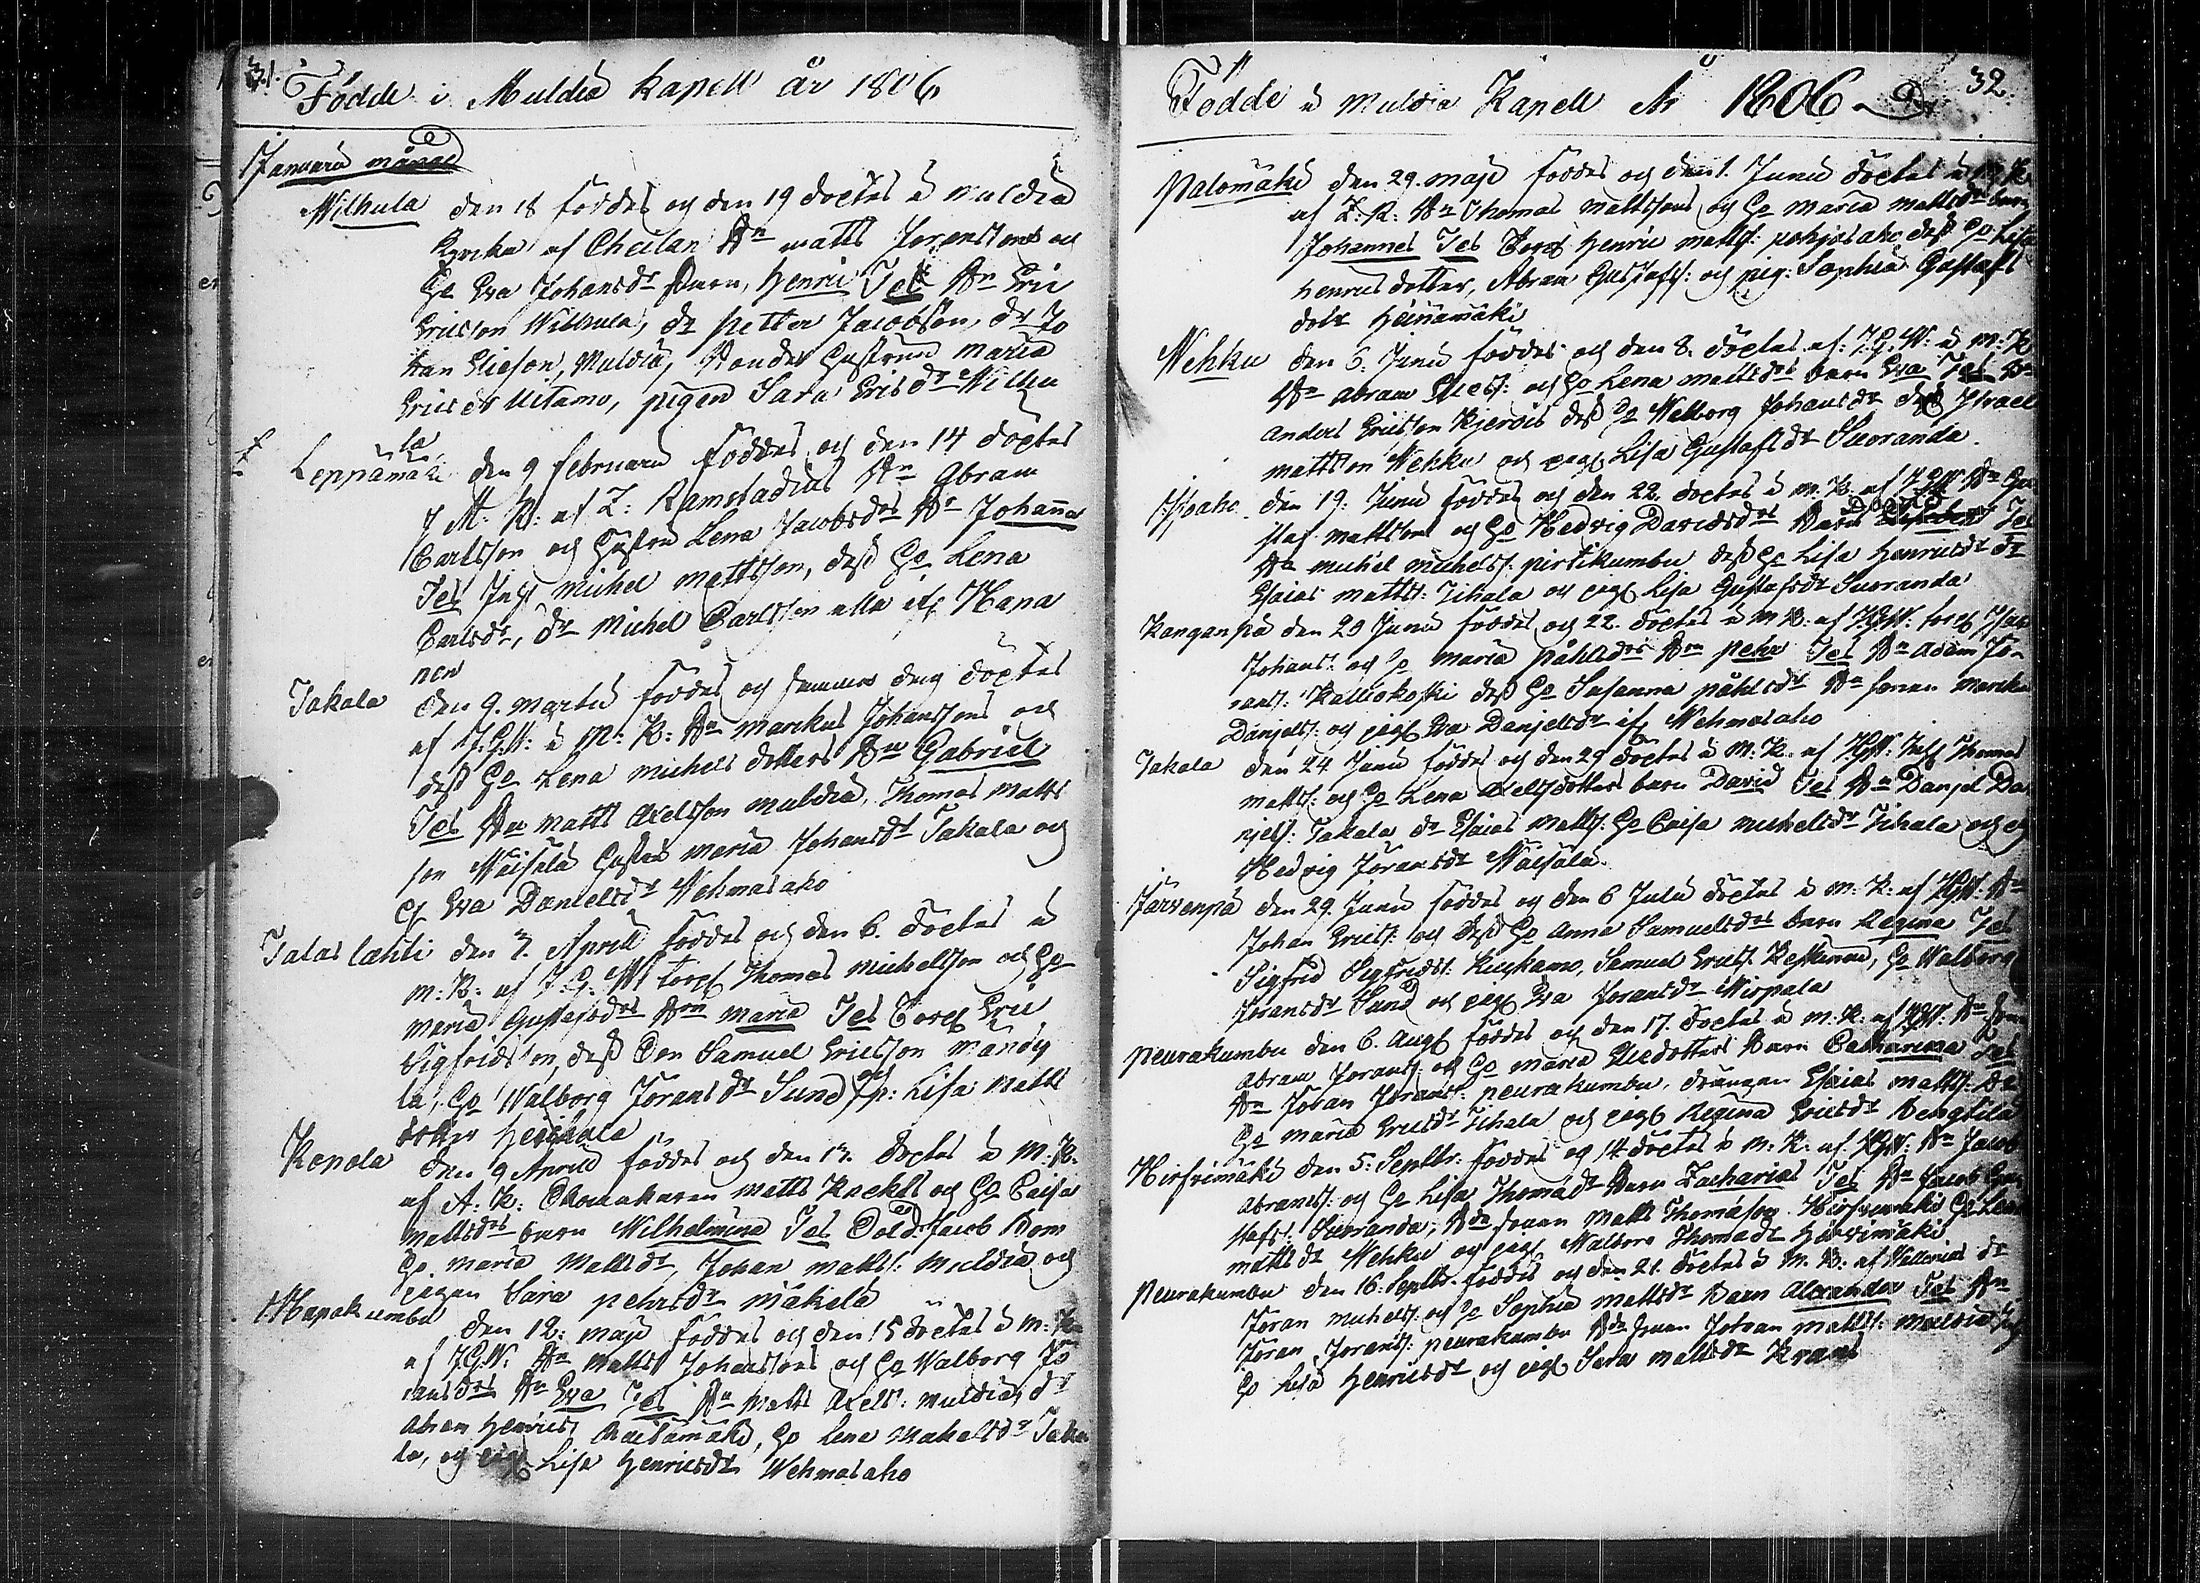 31.
Födde i Muldia Kapell år 1806
Januarii månad
Wilhula den 18 föddes och den 19 döptes i Muldia
Kyrka af Chellan Bn Matts Joransons och
Ho Eva Johansdr Barn, Henric Tes Bn Eric
Ericsson Wilhula, dr Petter Jacobsson, dr Jo
han Eliesson, Muldia, Hustrun Maria
Ericsdr Uitamo, pigan Sara Ericsdr Wilhu
la
Leppämäki den 9 februarii föddes och den 14 döptes
i M: K: af Z: Ramstadius Bn Abram
Carlsson och Hustru Lena Jacobsdrs Bn Johannes
Tes Inh Michel Mattsson, dess Ho Lena
Carlsdr, dr Michel Carlsson alla ifr Hapa
nen
Takala den 9. Martii föddes och samma dag döptes
af J.G.W: i M: K: Bn Marckus Johanssons och
dess Ho Lena Michels dotters Bn Gabriel
Tes Bn Matts Axelsson Muldia, Thomas Matts
son Wäisälä Hustru Maria Johansdr Takala och
Eva Danielsdr Wehmasaho
Talas lachti den 2. April föddes och den 6. döptes i
M: K: af J: G: W: torp Thomas Michelsson och Ho
Maria Gustafsdrs Brn Maria Tes Torp Eric
Sigfridsson, dess Son Samuel Ericsson Mändy
la, Ho Walborg Joransdr Sund och Jp: Lisa Matts
dotter Heikkala
Kenola den 9 April föddes och den 13. döptes i M: K.
af A: K: Matts Knekts och Ho Caisa
Mattsdrs barn Wilhelmina Tes Sold: Jacob Bom
Ho. Maria Mattsdr, Johan Matts: Muldia och
pigan Sara Pehrsdr Mäkelä
Hapakumbu den 12. Maji föddes och den 15 döptes i M: K
af J.G.W. Bn Matts Johanssons och Ho Walborg Jo
ransdrs Bn Eva Tes Bn Matts Axels: Muldia, dr
Abram Henrics: , Ho Lena Michelsdr Taka
la, och pig Lisa Henricsdr Wehmasaho
32
Födde i Muldia Kapell År 1806
Palomäki den 29. Maji föddes och den 1. Junii döptes i M: K
af Z: R: Bn Thomas Mattssons och Ho Maria Mattsdr barn
Johannes Tes Torp Henric Matts: Pohjosaho dess Ho Lisa
Henrics dotter, Abram Gustafs: och pig: Sophia Gustafs
dotr Heinämäki
Wehku den 6. Junii föddes och den 8. döptes af: J.G.W: i M: K
Bn Abram Elies: och Ho Lena Mattsdrs barn Eva Tes Bn
Anders Ericsson Kjerois dess Ho Walborg Johansdr dess Israel
Mattson Wehku och pig Lisa Gustafsdr Suoranda.
Isoaho den 19. Junii föddes och den 22. döptes i M: K: af J.G.W. Bn Gu
staf Mattsons och Ho Hedvig Davidsdrs Barn Tes
Bn Michel Michels: Pirtikumbu dess Ho Lisa Henricsdr dr
Esaias Matts: Tihala och pig Lisa Gustafsdr Suoranda
Kanganpä den 20 Junii föddes och 22. döptes i M: K: af J.G.W. torp Isac
Johans: och Ho Maria Påhlsdrs Brn Pehr Tes Bn Adam Jo-
rans: Kalliokoski dess Ho Susanna Påhlsdr Bn sonen Marcku
Danjels: och pig Eva Danjelsdr if Wehmasaho
Takala den 24 Junii föddes och den 29 döptes i M: K: af J.G.W: Inh Thomas
Matts: och Ho Lena Axelsdotters barn David Tes Bn Danjel Da
njels: Takala dr Esaias Matts: Ho Caisa Michelsdr Tihala och pig
Hedvig Joransdr Wäisälä
Järvenpä den 29. Junii föddes och den 6 Julii döptes i M: K: af J.G.W. Bn
Johan Erics: och dess Ho Anna Samuelsdrs barn Regina Tes
Sigfrid Sigfrids: Ruskamo, Samuel Erics: Keskinen, Ho Walborg
Joransdr Sund och pig Eva Joransdr Wirpala
Peurakumbu den 6. Aug föddes och den 17. döptes i M: K: af J.G.W. Bn Son
Abram Jorans: och Ho Maria Eliedotters Barn Catharina Tes
Bn Johan Jorans: Peurakumbu, drängen Esaias Matts:
Ho Maria Ericsdr Tihala och pig Regina Ericsdr Bengtila
Hirsimäki den 5: Septbr: föddes och 14 döptes i M: K: af J.G.W: Bn Jacob
Abrams: och Ho Lisa Thomasdr Barn Zacharias Tes Bn Jacob Gu
stafs: Suoranda, Bn sonen Matts Thomasson Hirsimäki Ho Lena
Mattsdr Wehku och pig Walborg Thomasdr Hirsimäki
Peurakumbu den 16. Septbr. föddes och den 21. döptes i M: K: af Wallenius dr
Joran Michels: och Ho Sophia Mattsdr Barn Alexander Tes Bn
Joran Jorans: Peurakumbu Bn sonen Johan Matts: Muldia
Ho Lisa Henricsdr och pig Sara Mattsdr Krans